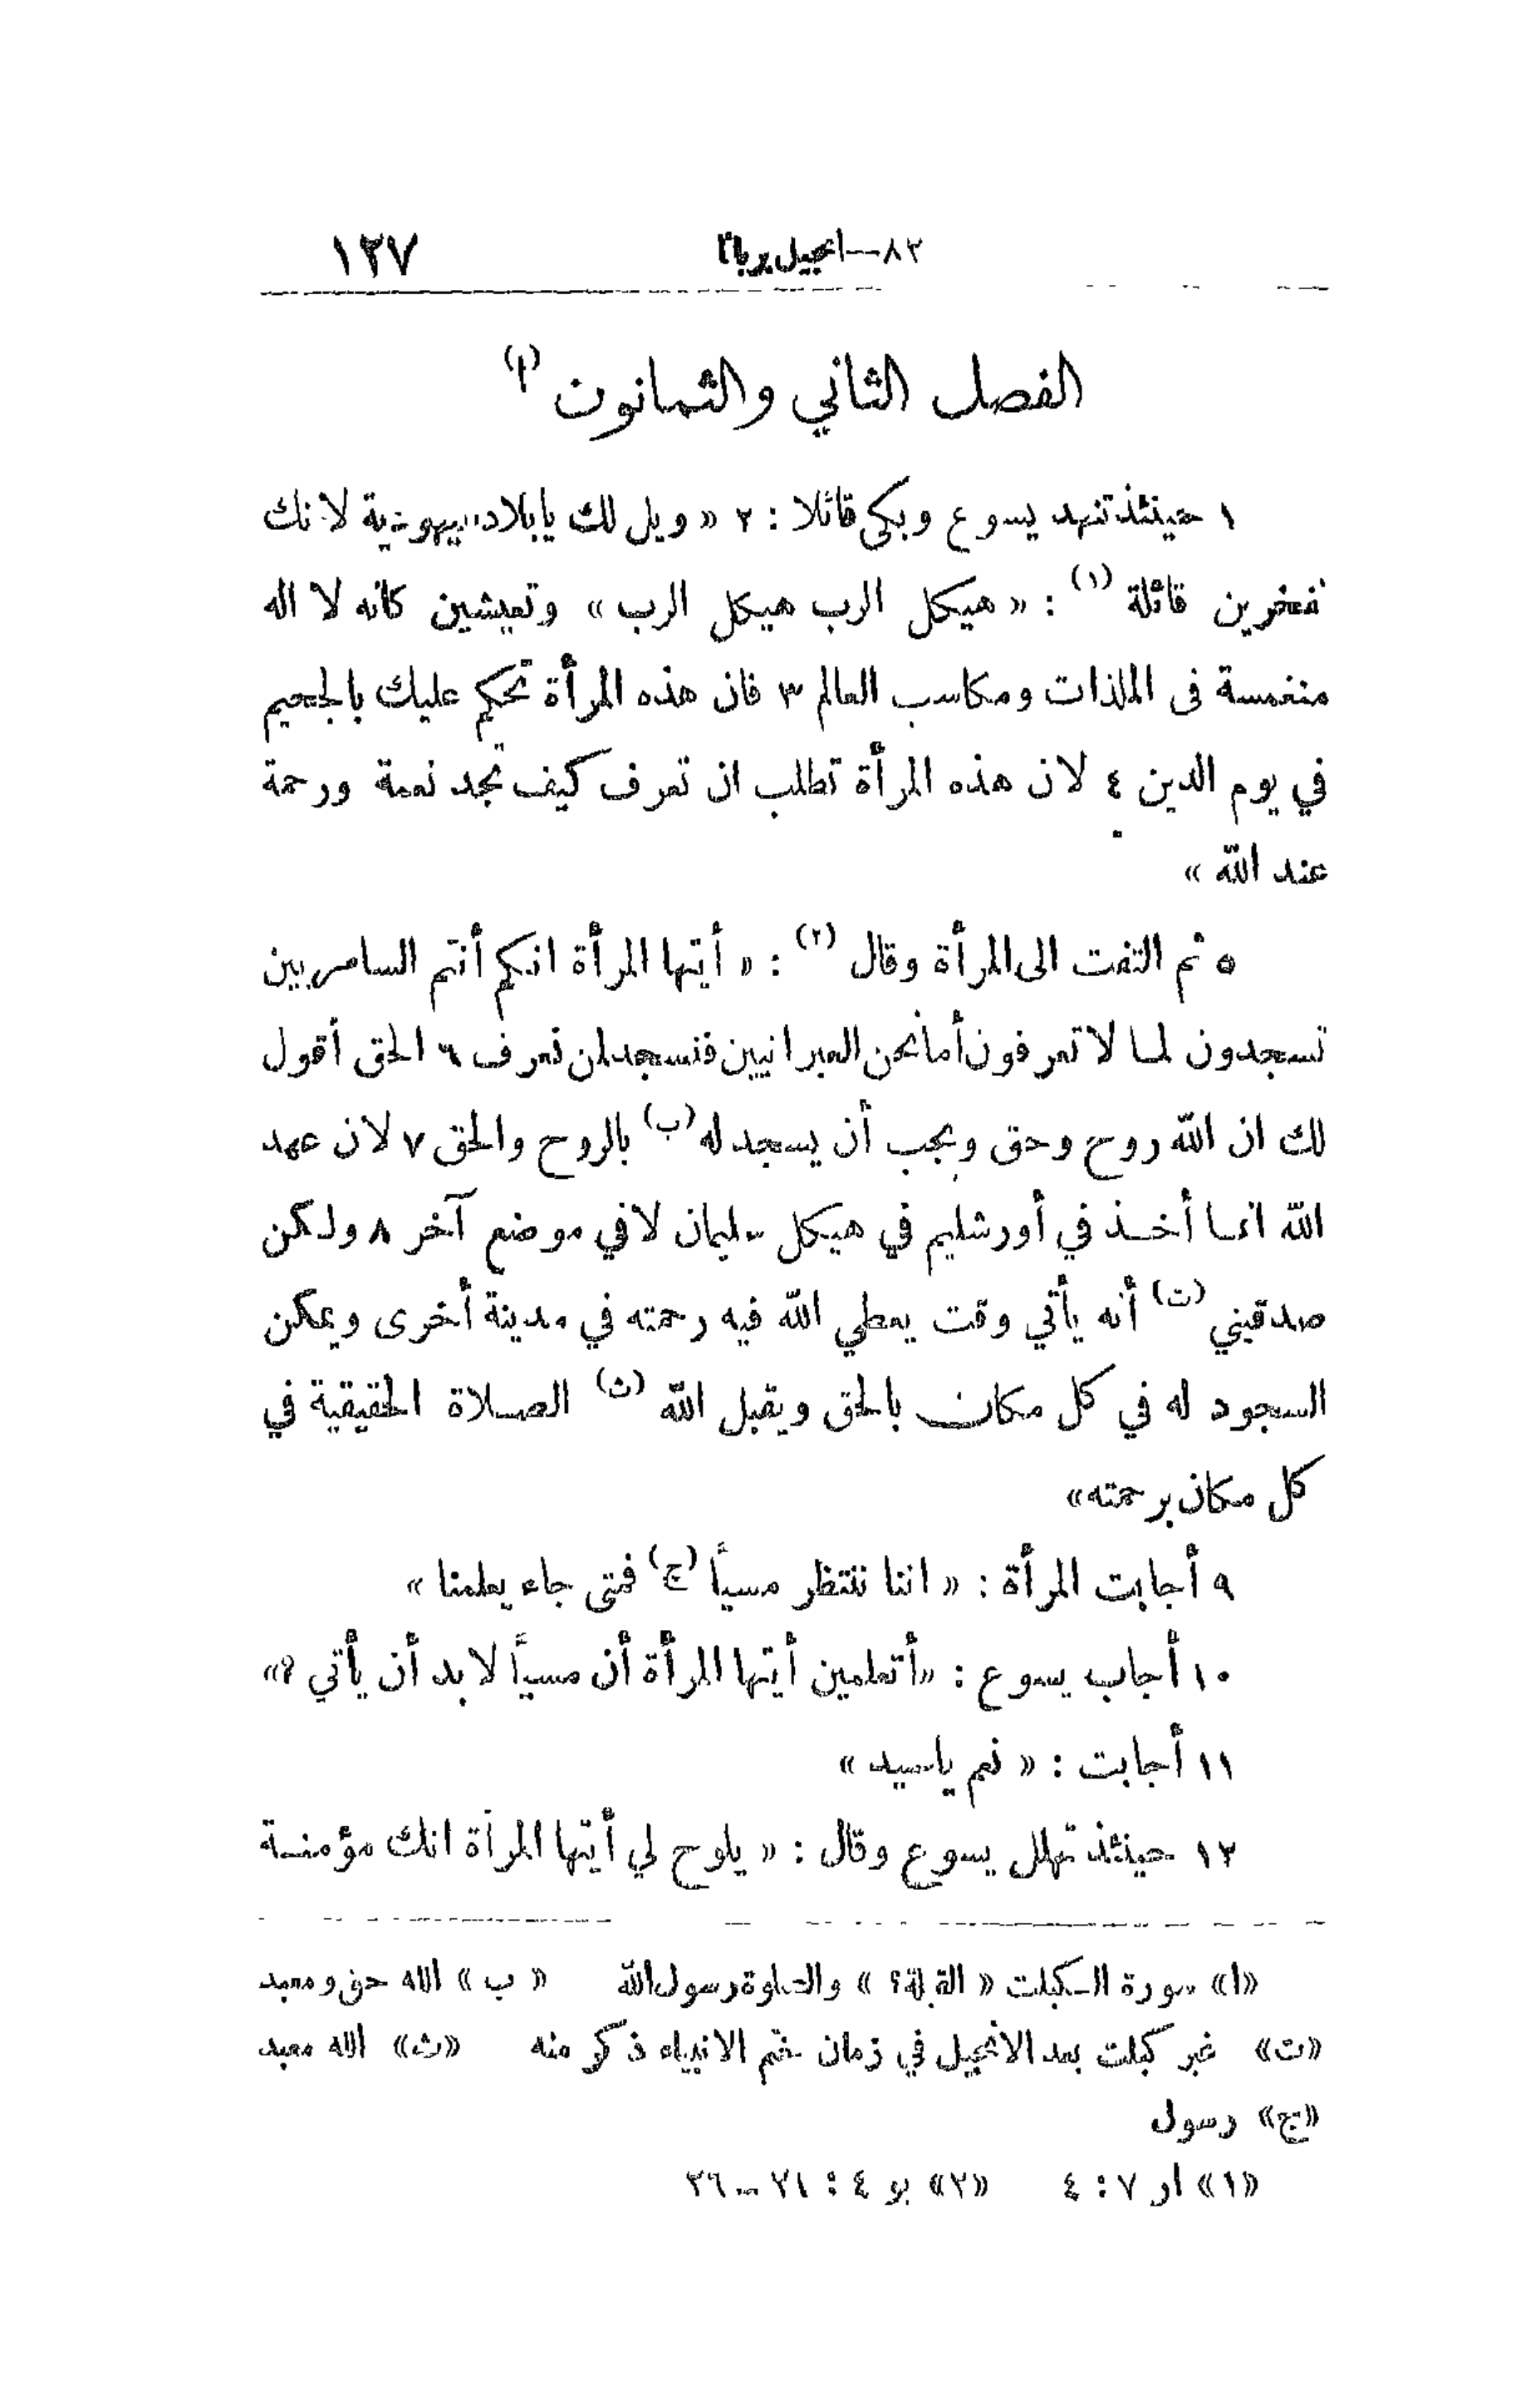 ٨٢—انجيل برنابا ١٢٧
الفصل الثاني والثمانون (ا)
١ حينئذ تنهد يسوع وبكى قائلا : ٢ « ويل لك يابلاد اليهودية لانك
تفخرين قائلة (١) : « هيكل الرب هيكل الرب » وتعيشين كانه لا اله
منغمسة فى الملذات ومكاسب العالم ٣ فان هذه المرأة تحكم عليك بالجحيم
في يوم الدين ٤ لان هذه المرأة تطلب ان تعرف كيف تجد نعمة ورحمة
عند الله »
٥ ثم التفت الى المرأة وقال (٢) : « أيتها المرأة انكم أنتم السامريين
تسجدون لما لا تعرفون أما نحن العبرانيين فنسجد لمن نعرف ٦ الحق أقول
لك ان الله روح وحق ويجب أن يسجد له (ب) بالروح والحق ٧ لان عهد
الله انما أخذ في أورشليم في هيكل سليمان لا في موضع آخر ٨ ولكن
صدقيني (ت) أنه يأتي وقت يعطي الله فيه رحمته في مدينة أخرى ويمكن
السجود له في كل مكان بالحق ويقبل الله (ث) الصلاة الحقيقية في
كل مكان برحمته»
٩ أجابت المرأة : « اننا ننتظر مسيأ (ج) فمتى جاء يعلمنا »
١٠ أجاب يسوع : «أتعلمين أيتها المرأة أن مسيأ لا بد أن يأتي ؟»
١١ أجابت : « نعم ياسيد »
١٢ حينئذ تهلل يسوع وقال : « يلوح لي أيتها المرأة انك مؤمنة
«ا» سورة الكبلت « القبلة؟ » والصلوة رسول الله « ب » الله حق ومعبد
«ت» غير كبلت بعد الانجيل في زمان ختم الانبياء ذكر منه «ث» الله معبد
«ج» رسول
«١» ار ٧ : ٤ «٢» يو ٤ : ٢١ — ٢٦